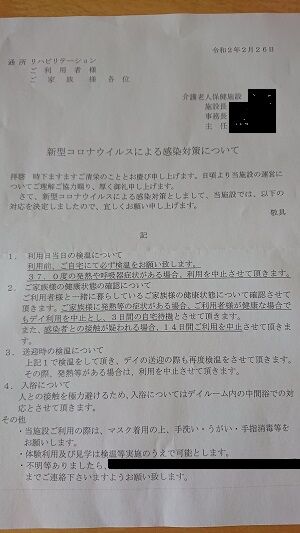 令和2年2月26日
通所リハビリテーション
ご利用者様
ご家族様各位
介護老人保健施設
施設長
事務長
主任
新型コロナウイルスによる感染対策について
拝啓 時下ますますご清栄のこととお慶び申し上げます。日頃より当施設の運営に
ついてご理解ご協力賜り、厚く御礼申し上げます。
さて、新型コロナウイルスによる感染対策としまして、当施設では、以下の
対応を決定しましたので、宜しくお願い申し上げます。
敬具
記
1．利用日当日の検温について
利用前、ご自宅にて必ず検温をお願い致します。
37．0度の発熱や呼吸器症状がある場合、利用を中止させて頂きます。
2．ご家族様の健康状態の確認について
ご利用者様と一緒に暮らしているご家族様の健康状態について確認させて
頂きます。ご家族様に発熱等の症状がある場合、ご利用者様が健康な場合で
もデイ利用を中止とし、3日間の自宅待機とさせて頂きます。
また、感染者との接触が疑われる場合、14日間ご利用を中止させて頂きま
す。
3．送迎時の検温について
上記1で検温をして頂き、デイの送迎の際も再度検温をさせて頂きます。
その際、発熱等がある場合は、利用を中止させて頂きます。
4．入浴について
人との接触を極力避けるため、入浴についてはデイルーム内の中間浴での対
応とさせて頂きます。
その他
・当施設ご利用の際は、マスク着用の上、手洗い・うがい・手指消毒等を
お願いします。
・体験利用及び見学は検温等実施のうえで可能とします。
・不明等ありましたら、
までご連絡下さいますようお願い致します。